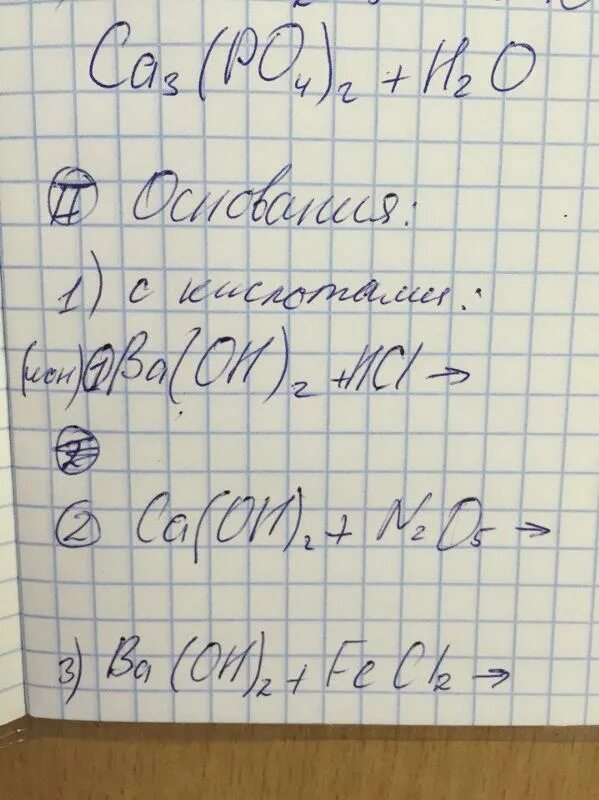 Ca₃(PO₄)₂ + H₂O
II Основания:
1) с кислотами:
(ион) 1 Ba(OH)₂ + HCl →
2
2 Ca(OH)₂ + N₂O₅ →
3) Ba(OH)₂ + FeCl₂ →